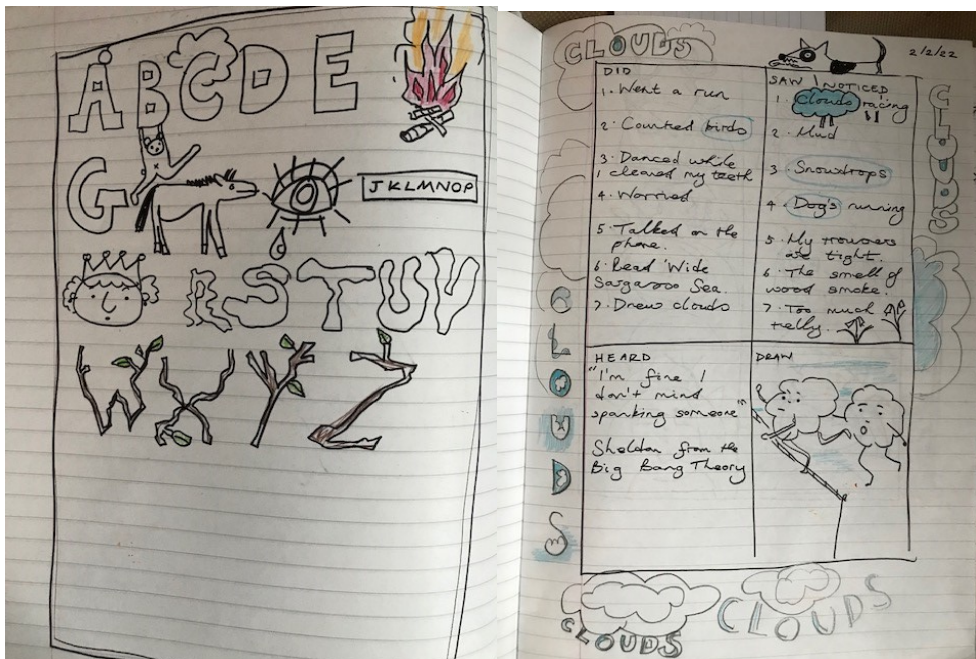 A B C D E
G
JKLMNOP
R S T U V
W X Y Z
CLOUDS
2/2/22
DID
1. Went a run
2. Counted birds
3. Danced while
I cleaned my teeth
4. Worried
5. Talked on the
phone.
6. Read 'Wide
Sargasso Sea.
7. Drew clouds
SAW / NOTICED
1. Clouds racing
2. Mud
3. Snowdrops
4. Dog's running
5. My trousers
are tight.
6. The smell of
wood smoke.
7. Too much
telly.
HEARD
"I'm fine I
don't mind
spanking someone"
Sheldon from the
Big Bang Theory
DRAW
CLOUDS
CLOUDS
CLOUDS
CLOUDS